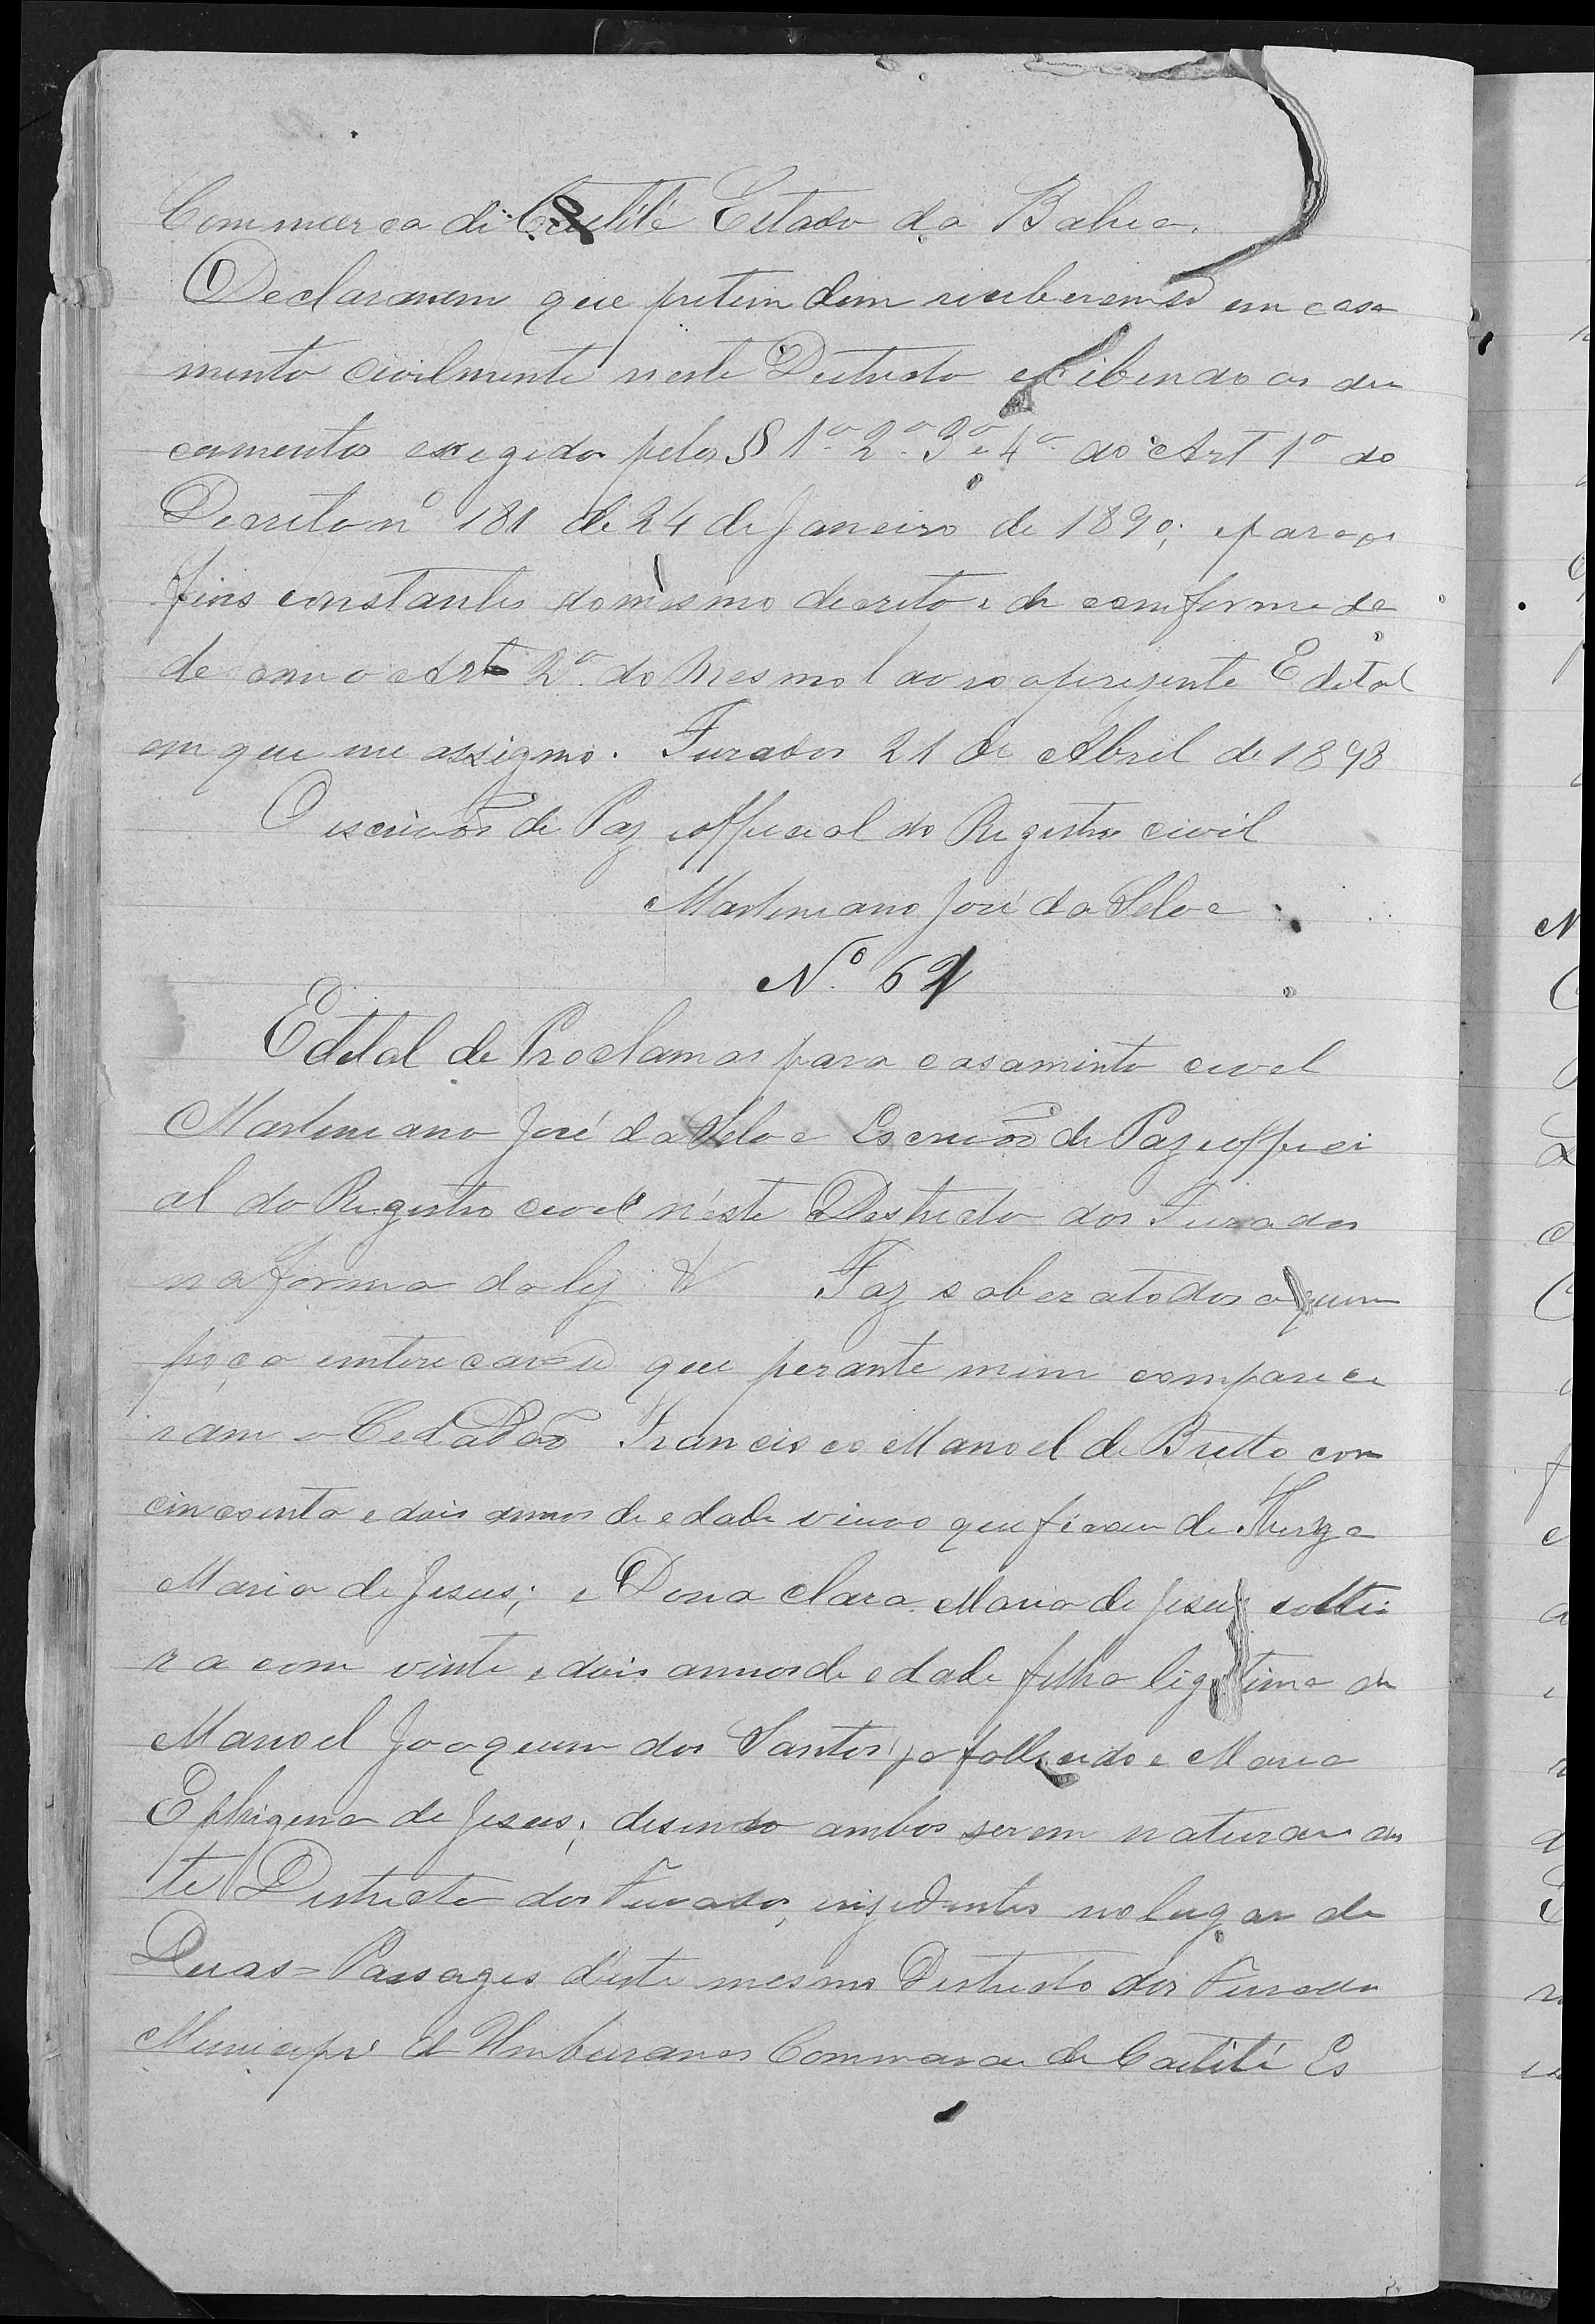 Commarca de Caetité Estado da Bahia.
Declararam que pretendem receberemse em casa
mento civilmente neste Destricto exibindo os du
camentos exegidos pelos § 1º 2º 3º e 4º do Art 1º do
Decreto nº 181 de 24 de Janeiro de 1890; e para os
fins constantes do mesmo decreto e de comformeda
de com o Art 2º do mesmo lavro o prezente Edital
em que me assigno. Furados 21 de Abril de 1898
O escrivão de Paz e official do Registro civil
Marteniano José da Selva
Nº 62
Edital de Proclamas para casamento cevel
Marteniano José da Selva Escrivão de Paz e offici
al do Registro cevel néste Destricto dos Furados
na forma da ley &
Faz saber a todos a quem
poça entereçarse que perante mim comparece
ram o Cedadão Francisco Manoel de Britto com
cincoenta e dois annos de edade viuvo que ficou de Thereza
Maria de Jesus; e Dona Clara Maria de Jesus soltei
ra com vinte e dois annos de edade filha ligitima de
Manoel Joaquim dos Santos ja fallecido e Maria
Ephigena de Jesus; disendo ambos serem naturaes des
te Destricto dos Furados, rezidentes no lugar de
Duas=Passages déste mesmo Destricto dos Furados
Municipio d Umburanas Commarca de Caetité Es